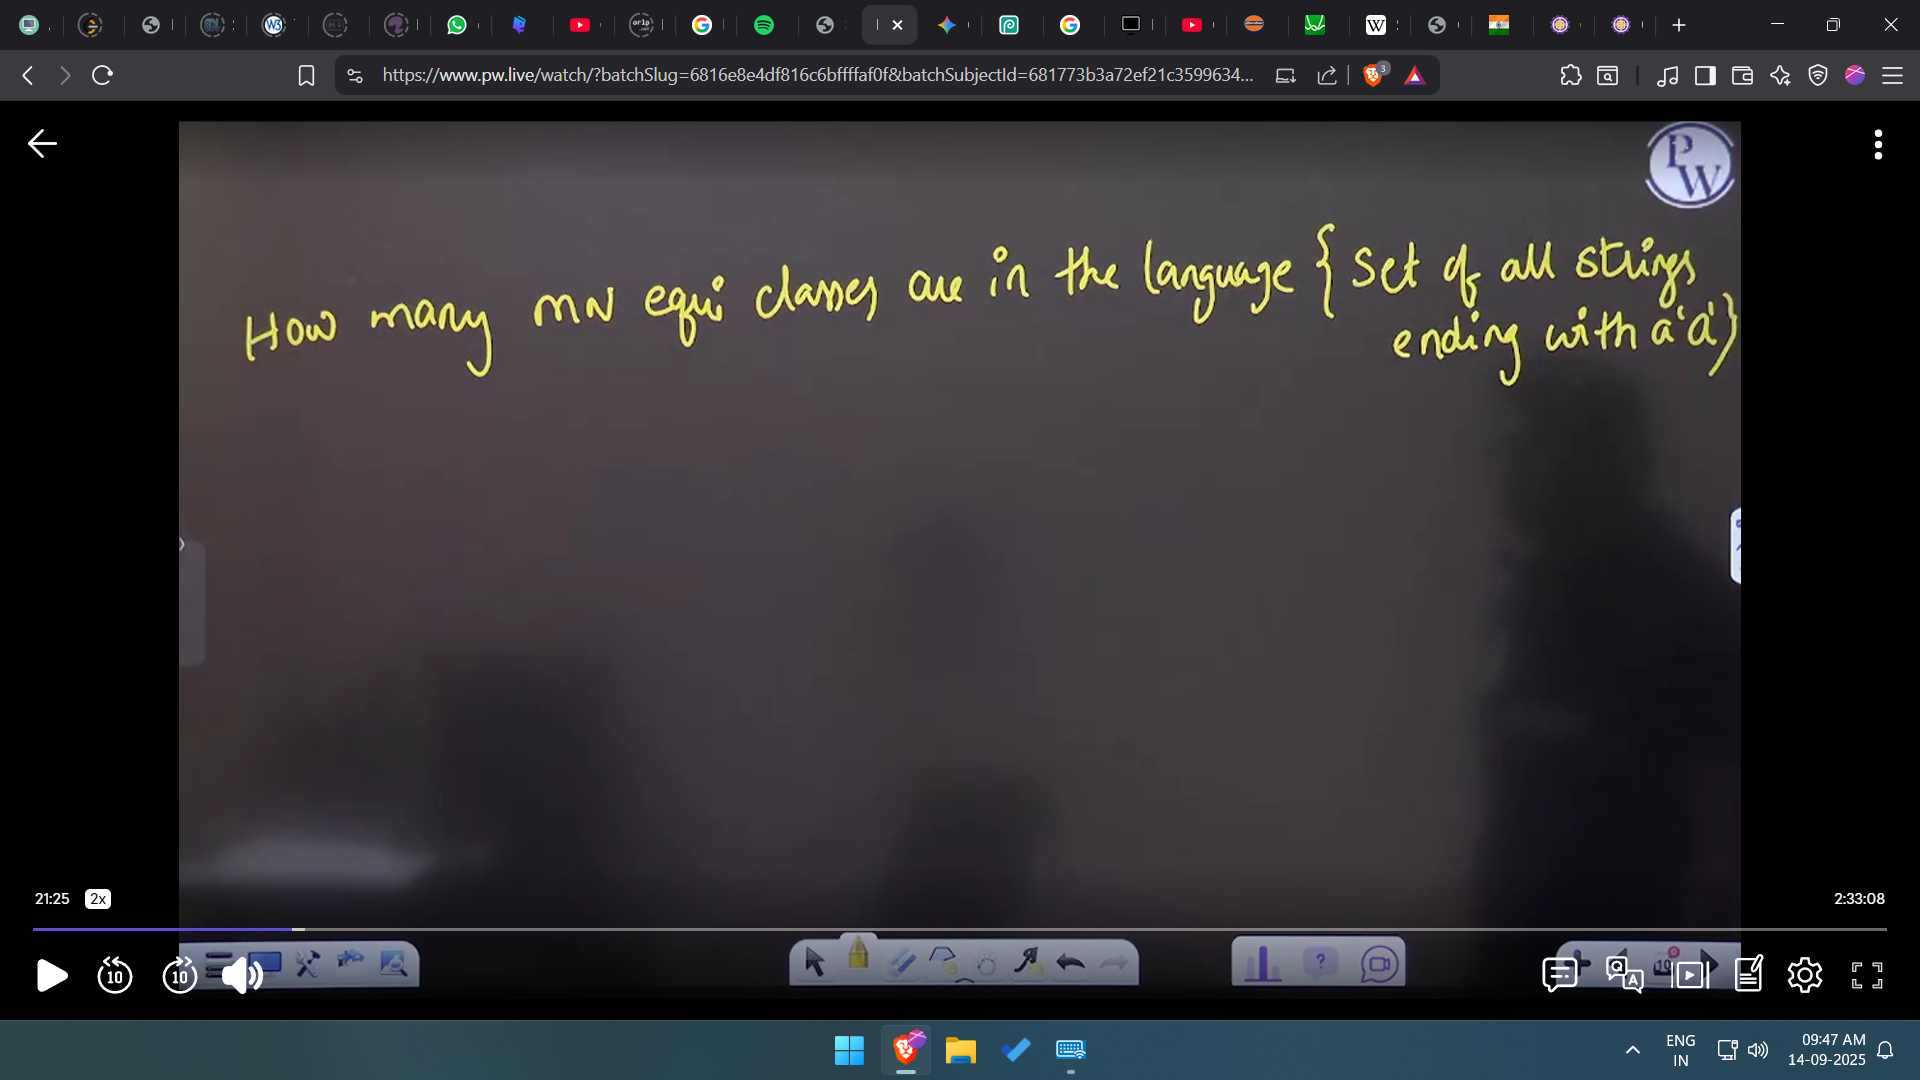 https://www.pw.live/watch/?batchSlug=6816e8e4df816c6bffffaf0f&batchSubjectId=681773b3a72ef21c3599634...
3
PW
How many MN equi classes are in the language { Set of all strings
ending with a 'a' }
21:25 2x
2:33:08
10 10
ENG
IN
09:47 AM
14-09-2025